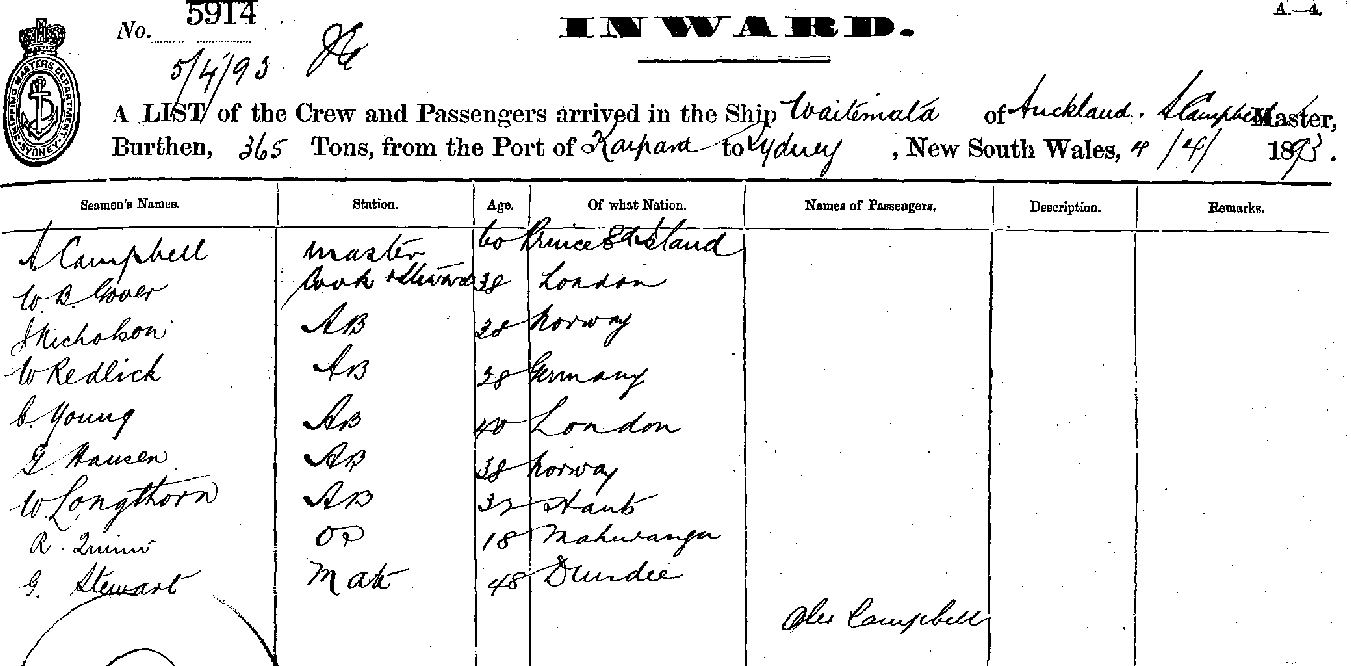 No. 5914
INWARD.
A.—4.
5/4/93
SHIPPING MASTERS DEPARTMENT SYDNEY
A LIST of the Crew and Passengers arrived in the Ship Waitemata of Auckland. A Campbell Master,
Burthen, 365 Tons, from the Port of Kaipara to Sydney, New South Wales, 4/4/1893.
Seamen's Names. Station. Age. Of what Nation. Names of Passengers. Description. Remarks.
A Campbell master 60 Prince Ed Island
W. B. Gover Cook & Steward 38 London
J Nicholson AB 28 Norway
W Redlick AB 28 Germany
C. Young AB 40 London
G Hansen AB 38 Norway
W. Longthorn AB 32 Hants
R. Quinn OS 18
G. Stewart Mate 48 Dundee
Alex Campbell